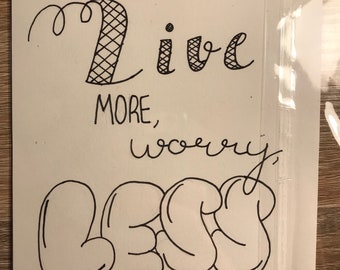 Live
MORE,
worry,
LESS